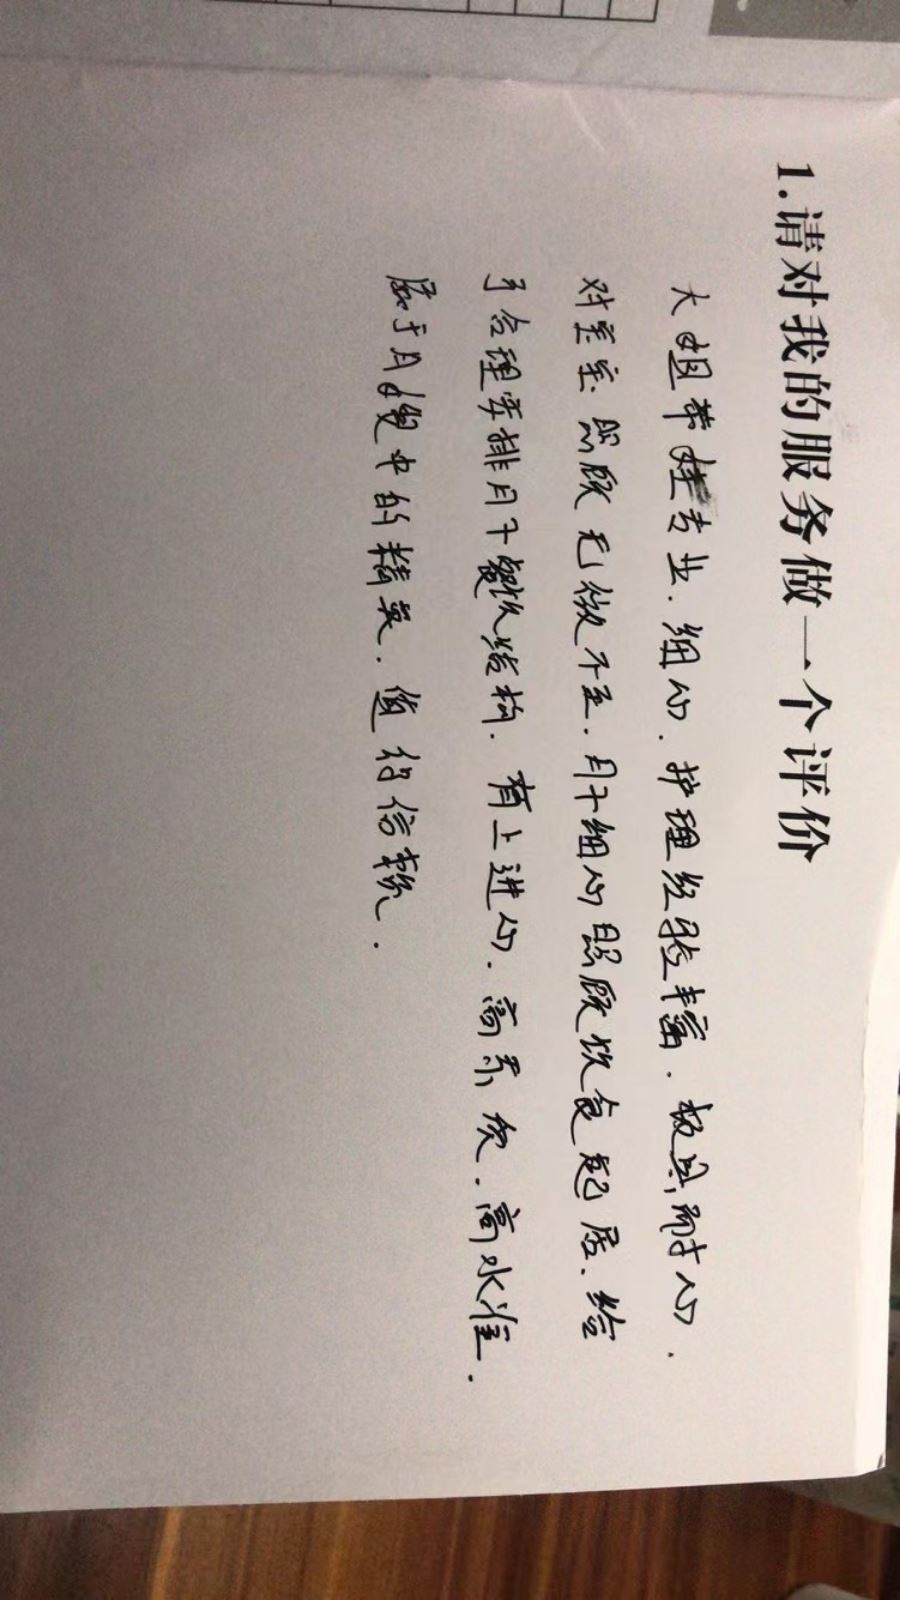 1.请对我的服务做一个评价
大姐带娃专业.细心.护理经验丰富.极具耐心.
对宝宝照顾无微不至.月子细心照顾饮食起居.给
予合理安排月子餐饮结构.有上进心.高素质.高水准.
属于月嫂中的精英.值得信赖.